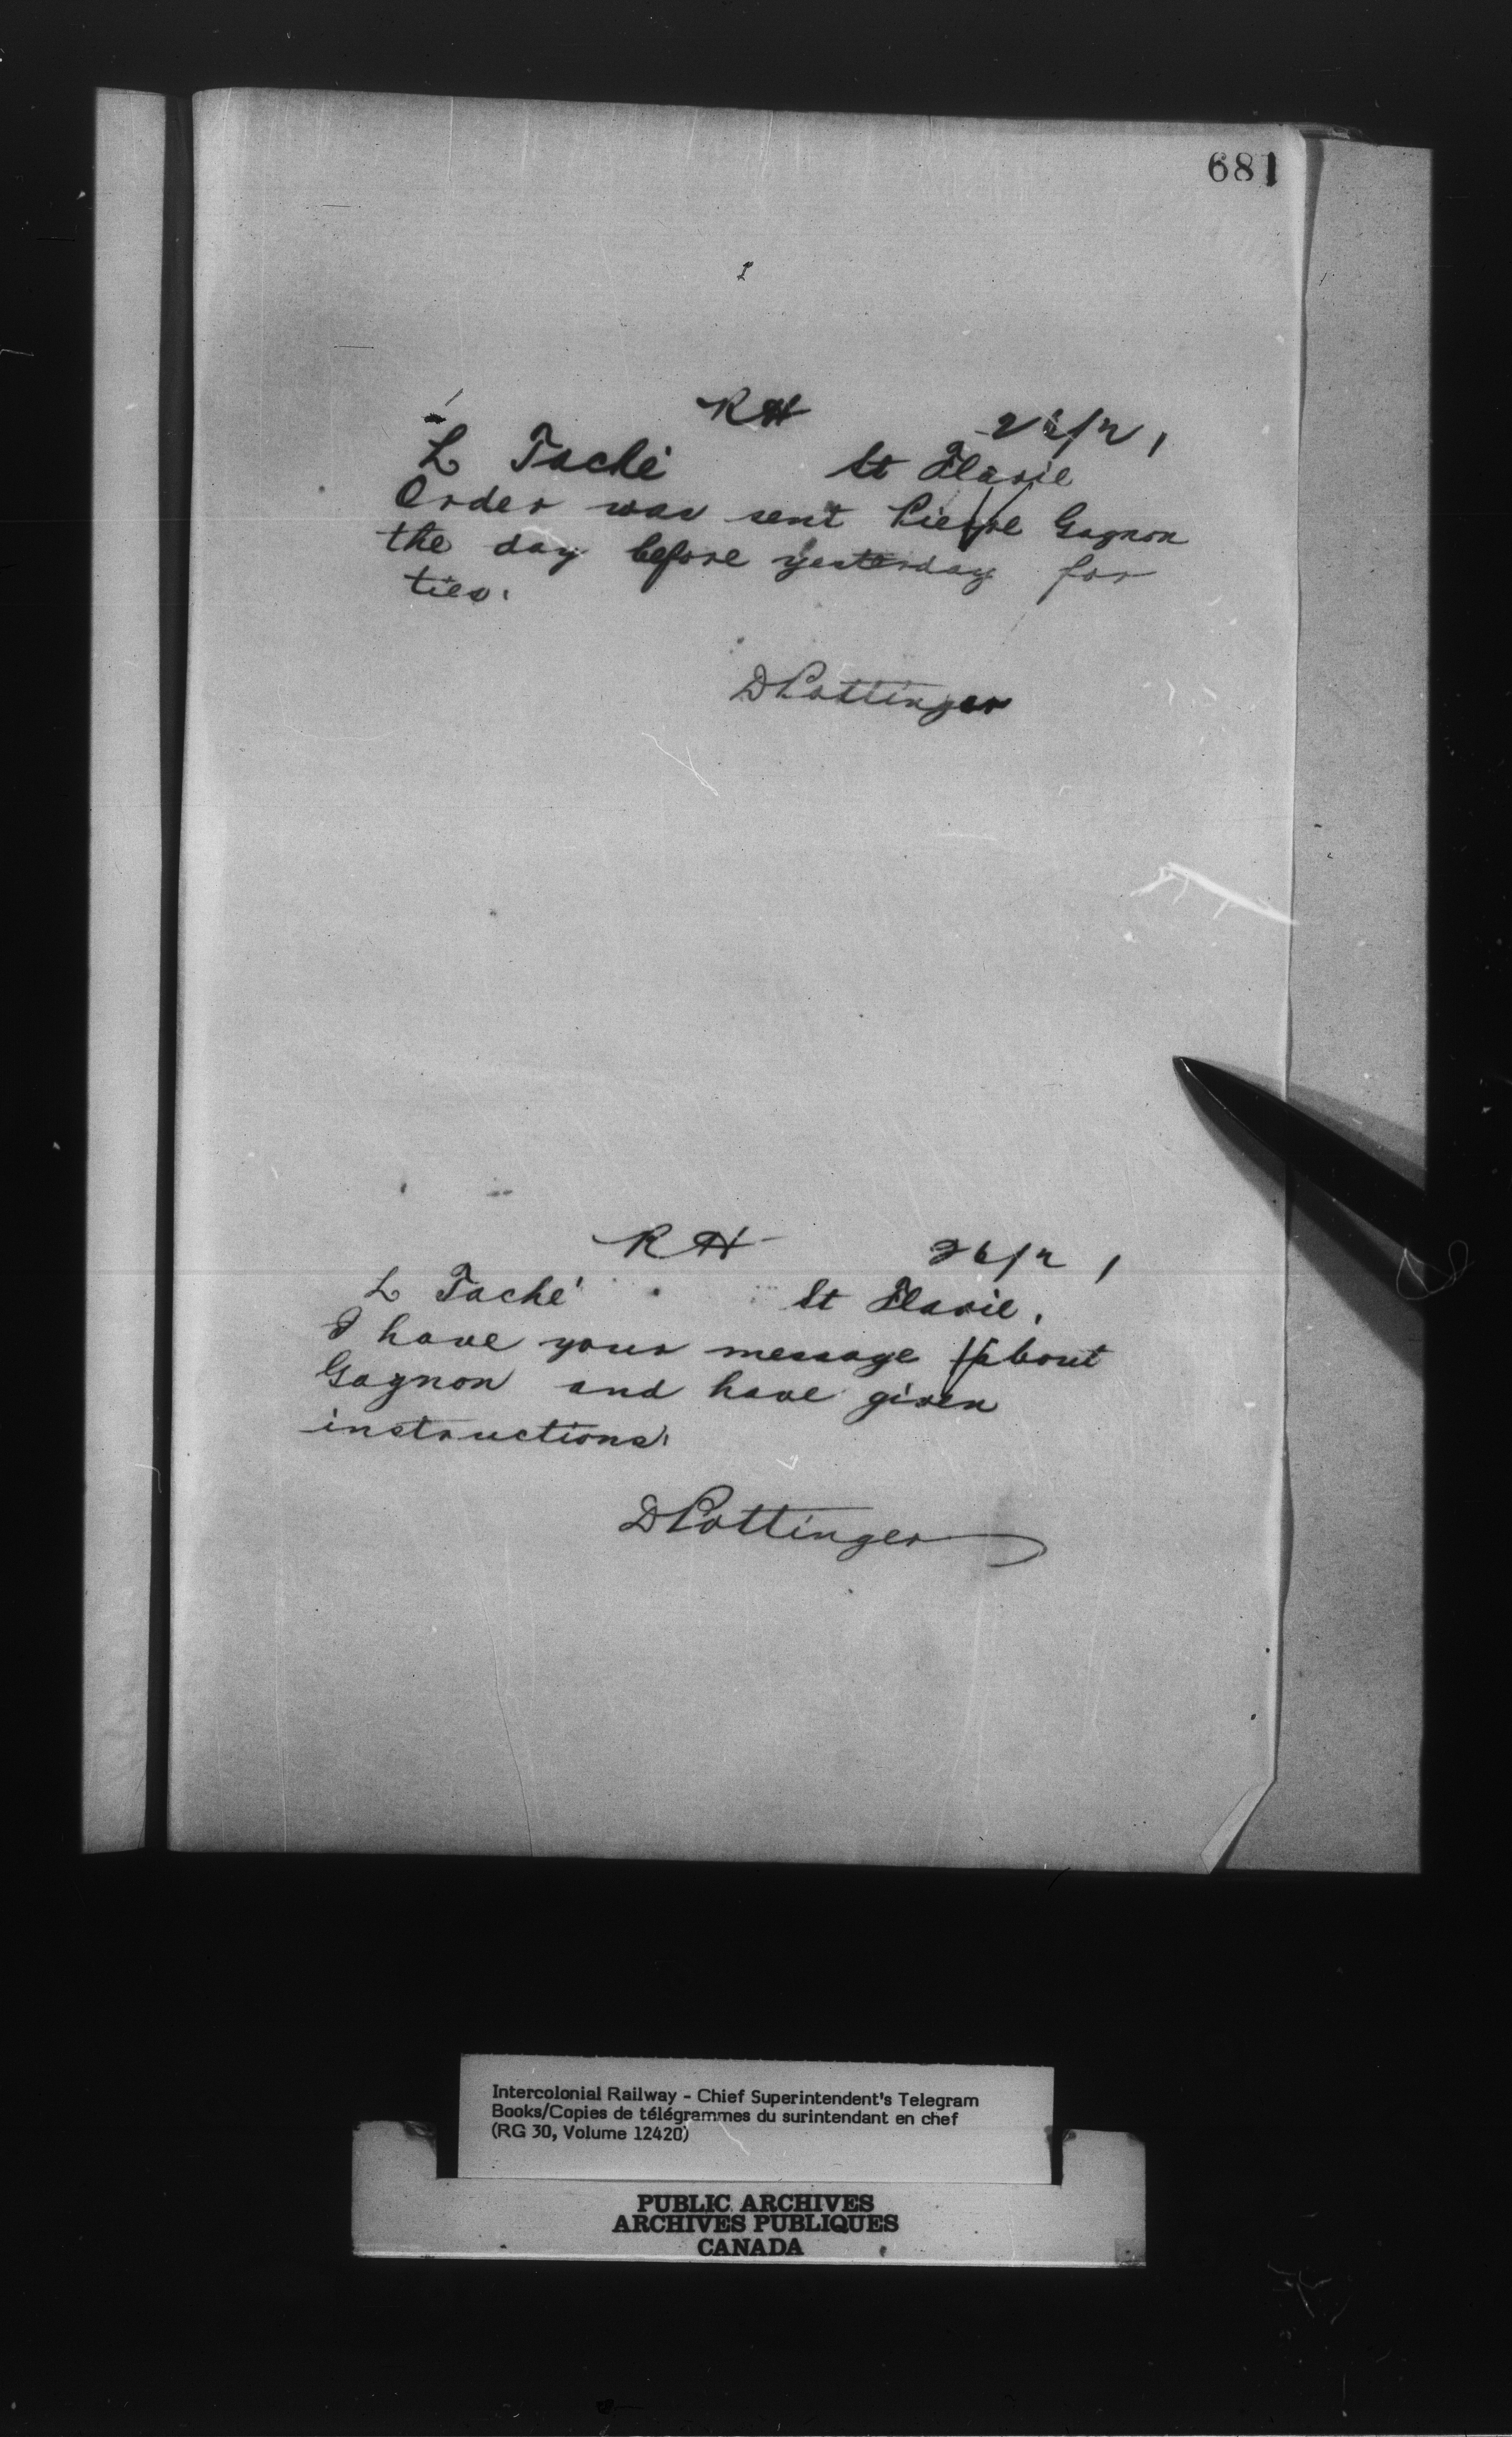 681
RH 26/2 1
L Taché St Flavie
Order was sent Pierre Gagnon
the day before yesterday for
ties.
D Pottinger
RH 26/2 1
L Taché St Flavie.
I have your message about
Gagnon and have given
instructions.
D Pottinger
Intercolonial Railway - Chief Superintendent's Telegram
Books/Copies de télégrammes du surintendant en chef
(RG 30, Volume 12420)
PUBLIC ARCHIVES
ARCHIVES PUBLIQUES
CANADA